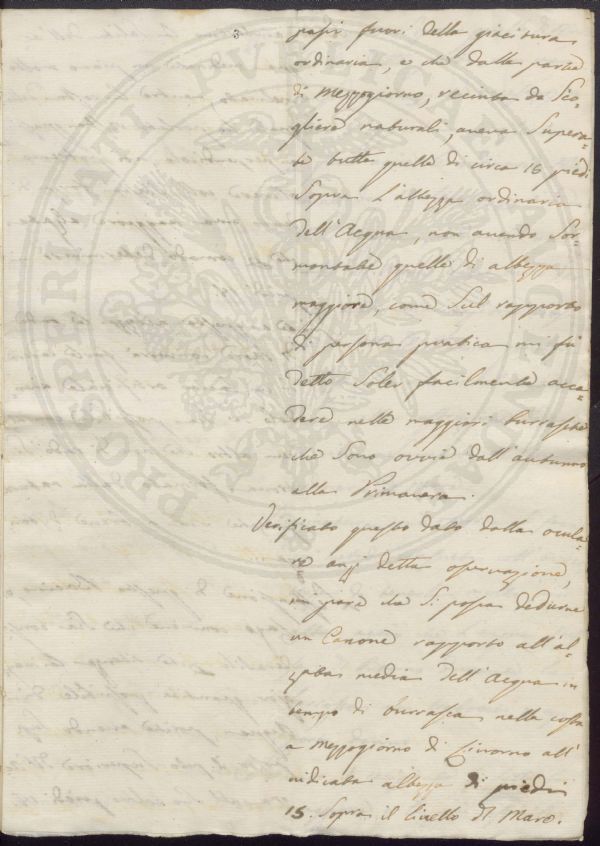 3
passi fuori della giacitura
ordinaria, e che dalla parte
di Mezzogiorno, recinta da Sco-
gliere naturali, aveva Supera-
te tutte quelle di circa 15 piedi
Sopra L'altezza ordinaria
dell'Acqua, non avendo Sor-
montate quelle di altezza
maggiore, come Sul rapporto
di persona pratica mi fu
detto Soler facilmente acca-
dere nelle maggiori burrasche
che Sono ovvie dall'autunno
alla Primavera.
Verificato questo dato dalla ocula-
re anzi detta osservazione,
mi pare che Si possa dedurne
un Canone rapporto all'al-
tezza media dell'Acqua in
tempo di burrasca nella costa
a Mezzogiorno di Livorno all'
indicata altezza di piedi
15. Sopra il livello dl Mare.
PROSPERITATI PVBLICAE